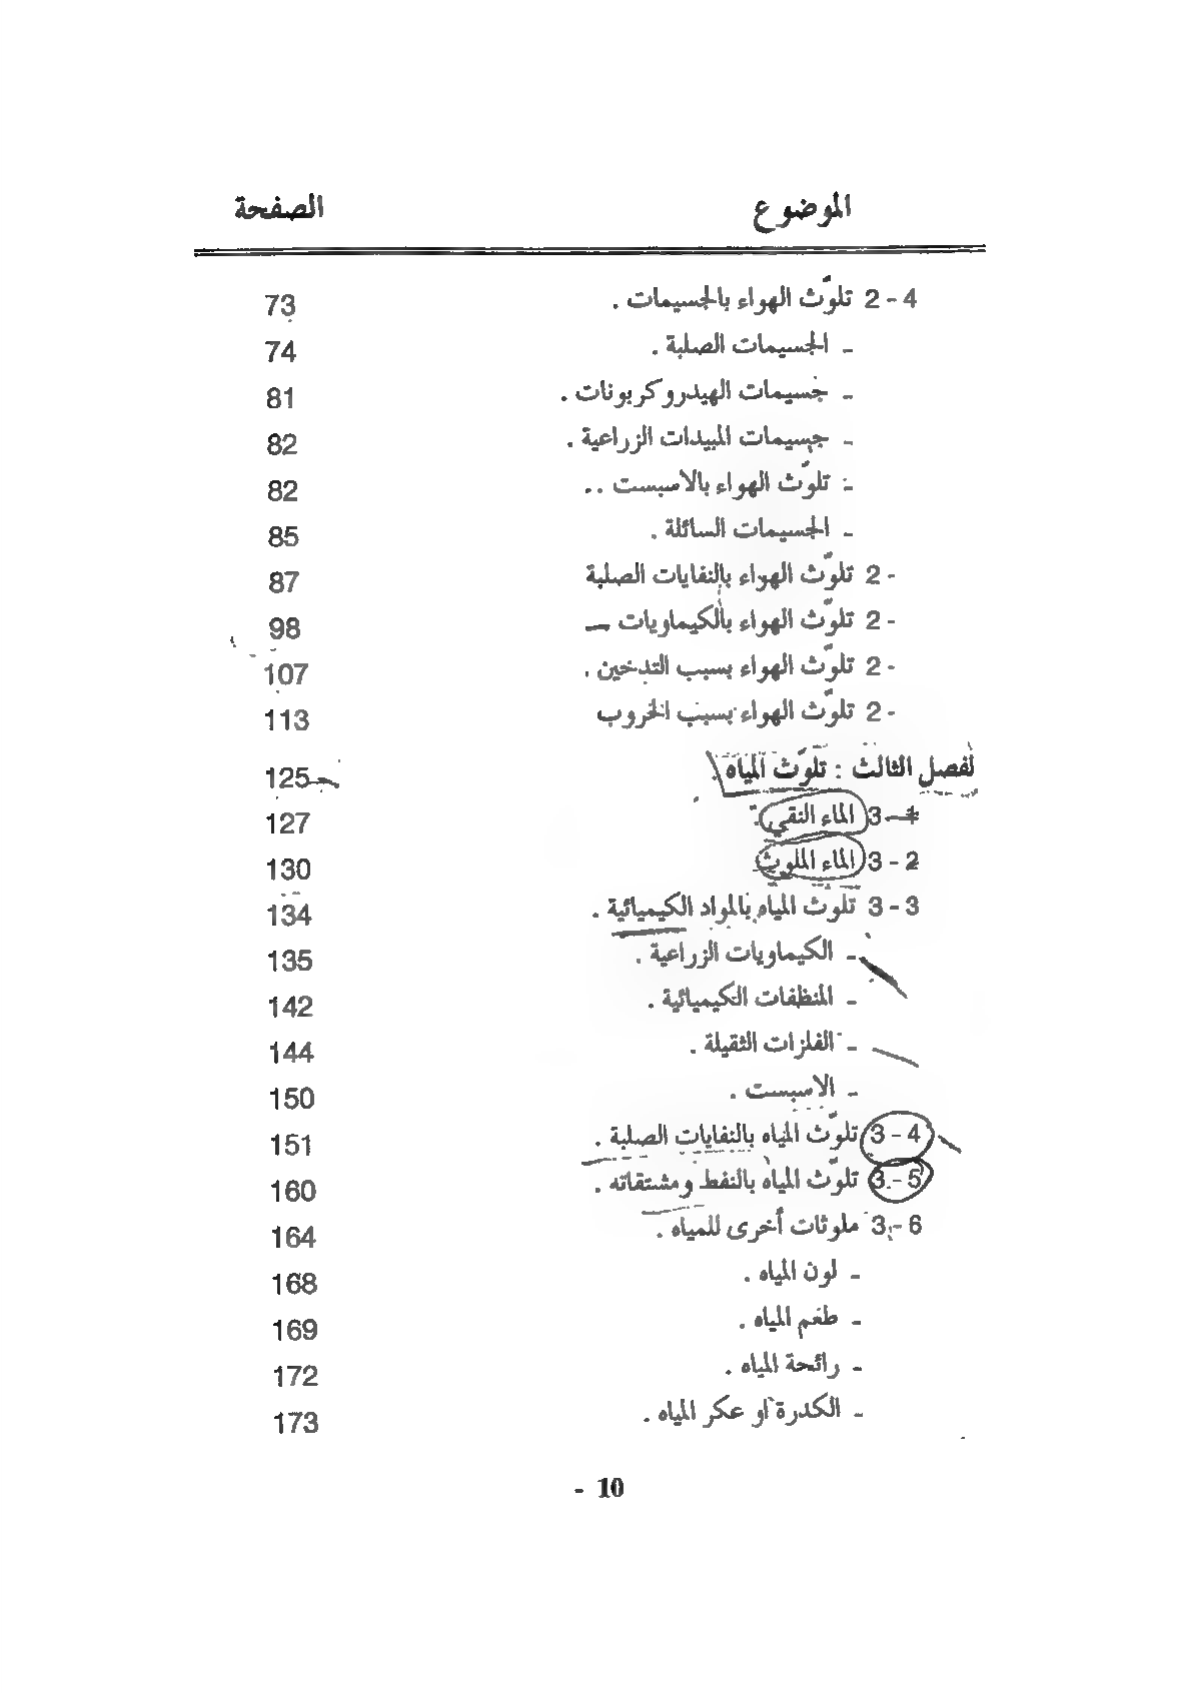 الموضوع الصفحة
2 - 4 تلوّث الهواء بالجسيمات . 73
ـ الجسيمات الصلبة . 74
ـ جسيمات الهيدروكربونات . 81
ـ جسيمات المبيدات الزراعية . 82
ـ تلوّث الهواء بالاسبست . . 82
ـ الجسيمات السائلة . 85
2 - تلوّث الهواء بالنفايات الصلبة 87
2 - تلوّث الهواء بالكيماويات 98
2 - تلوّث الهواء بسبب التدخين . 107
2 - تلوّث الهواء بسبب الحروب 113
لفصل الثالث : تلوّث المياه . 125
3 - 1 الماء النقي . 127
3 - 2 الماء الملوث 130
3 - 3 تلوّث المياه بالمواد الكيميائية . 134
ـ الكيماويات الزراعية . 135
ـ المنظفات الكيميائية . 142
ـ الفلزات الثقيلة . 144
ـ الاسبست . 150
3 - 4 تلوّث المياه بالنفايات الصلبة . 151
3 - 5 تلوّث المياه بالنفط ومشتقاته . 160
3 - 6 ملوثات أخرى للمياه . 164
ـ لون المياه . 168
ـ طعم المياه . 169
ـ رائحة المياه . 172
ـ الكدرة أو عكر المياه . 173
- 10